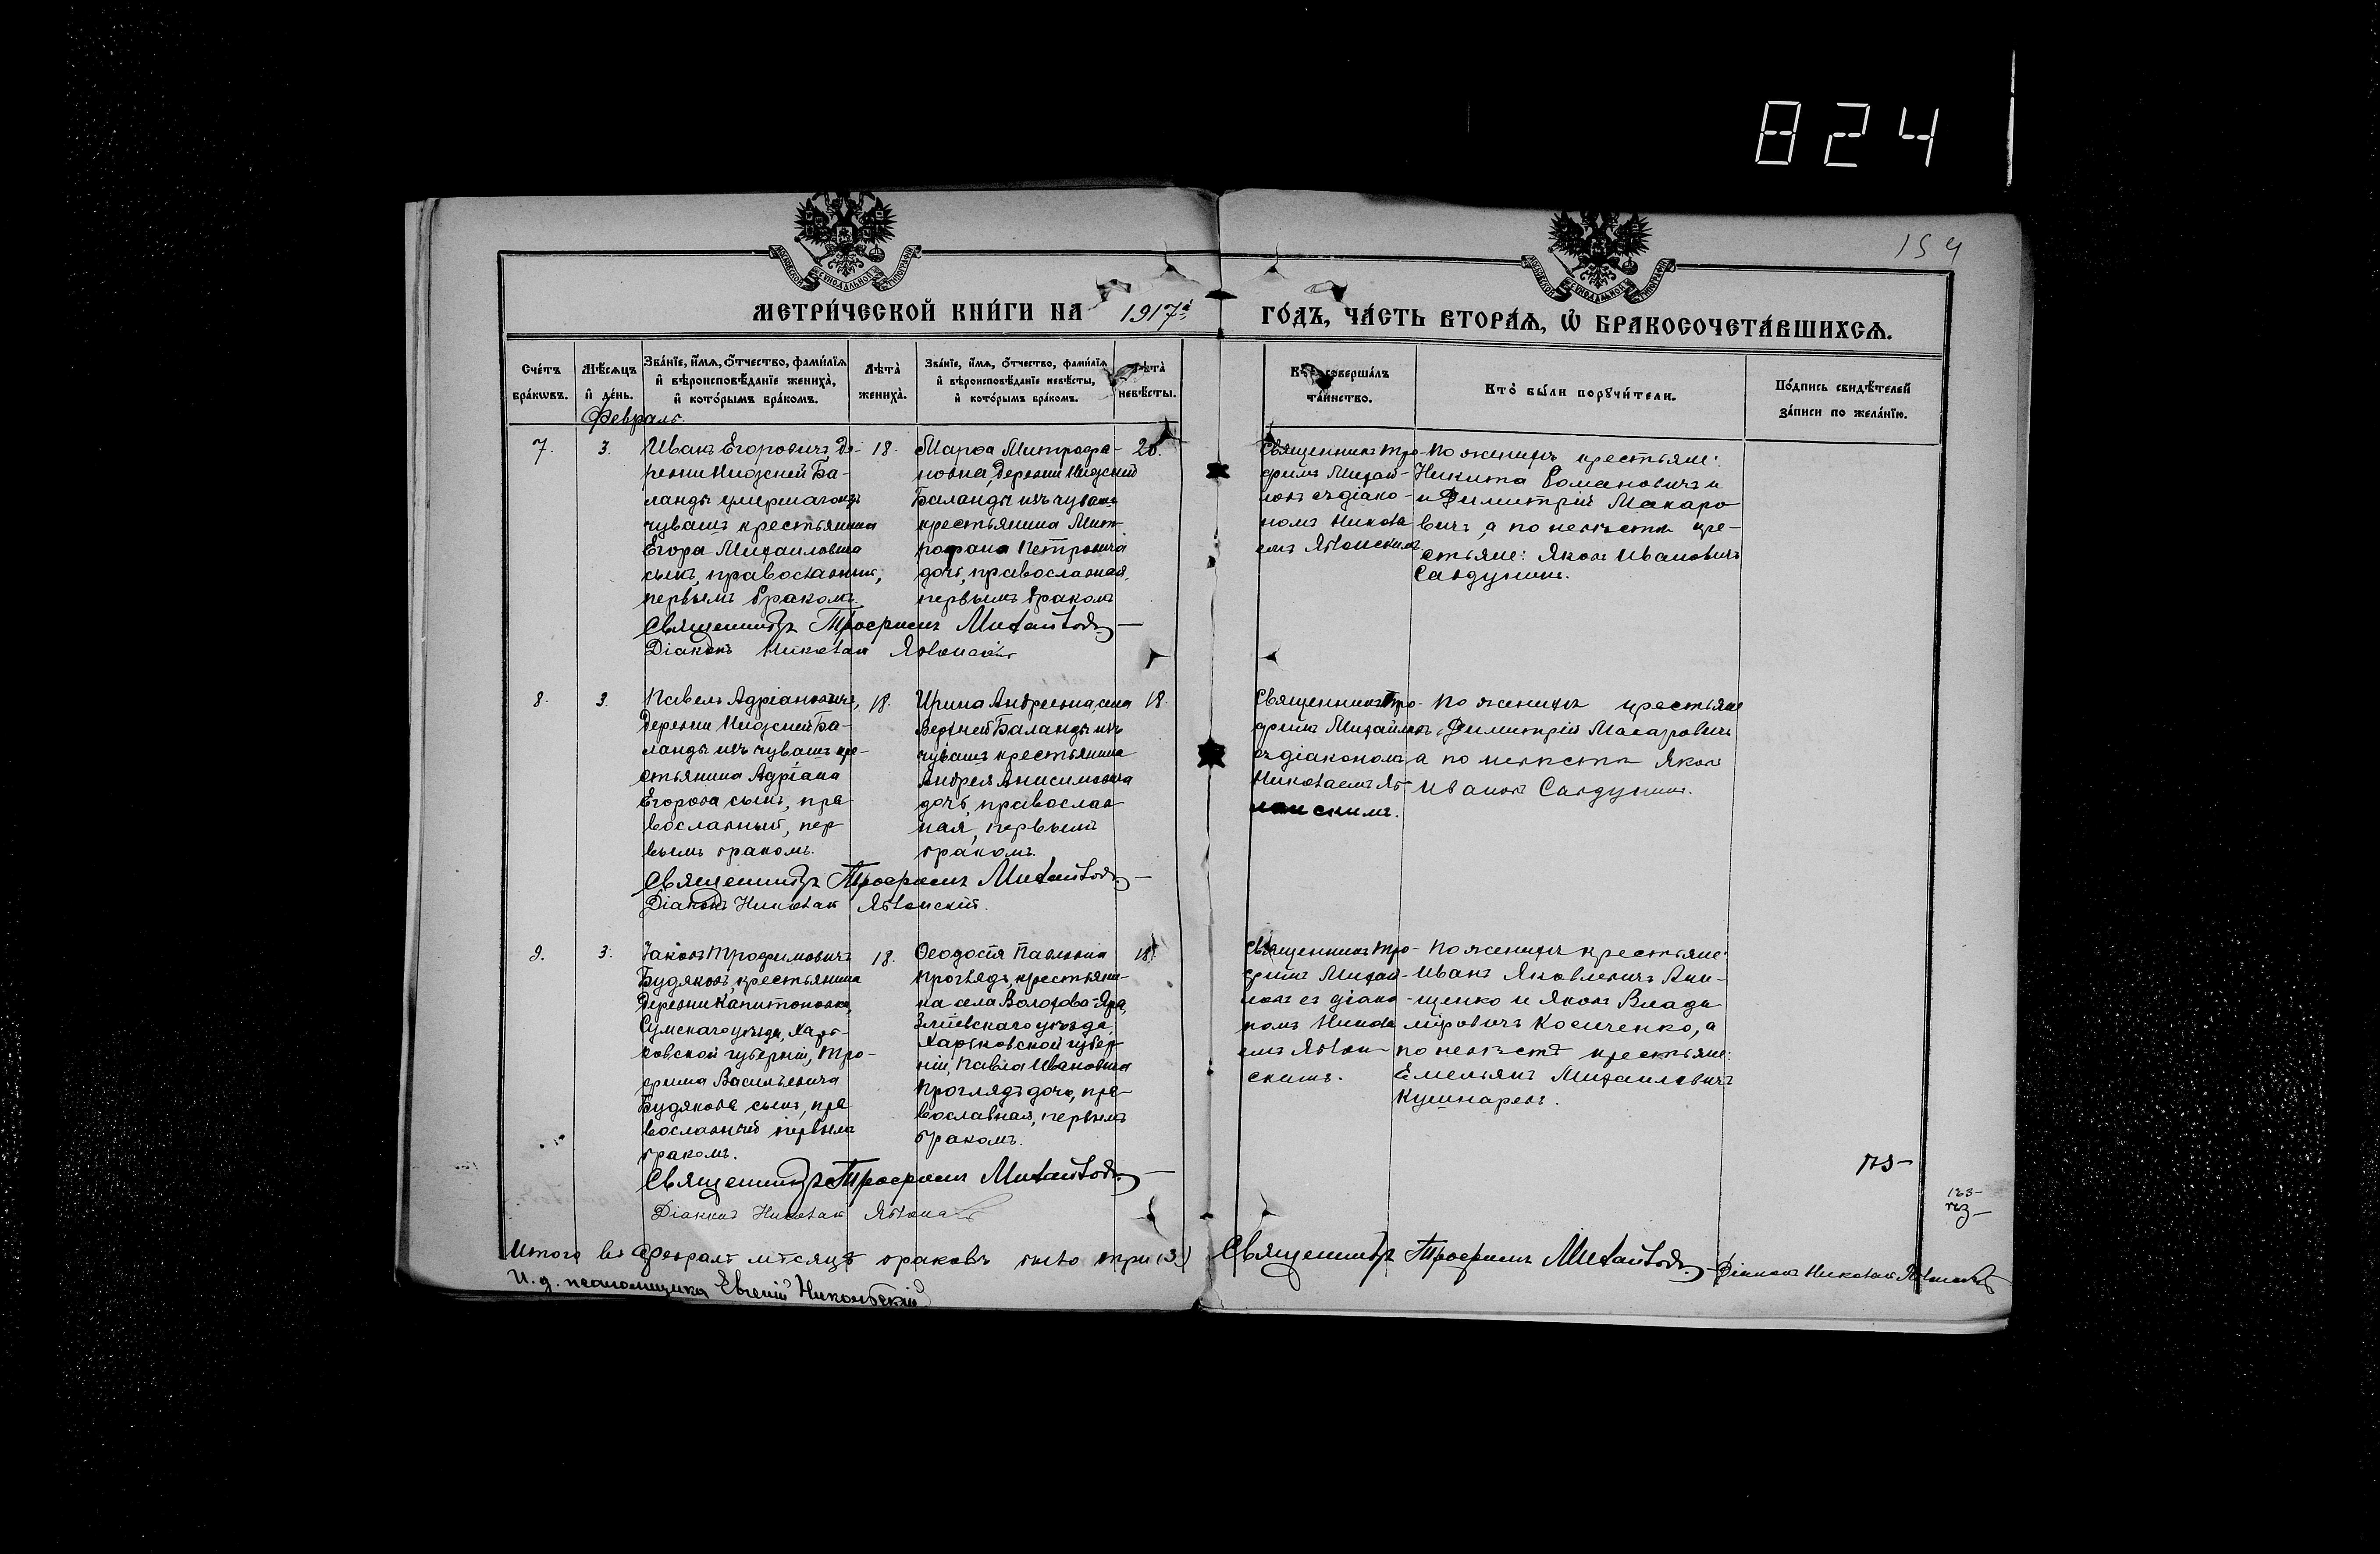 824
154
МОСКОВСКОЙ СѴНОДАЛЬНОЙ ТИПОГРАФІИ
МОСКОВСКОЙ СѴНОДАЛЬНОЙ ТИПОГРАФІИ
МЕТРИ́ЧЕСКОЙ КНИ́ГИ НА 1917й ГО́ДЪ, ЧА́СТЬ ВТОРА́Ѧ, Ѡ҆ БРАКОСОЧЕТА́ВШИХСѦ.
Сче́тъ бра́кѡвъ.
Мѣ́сѧцъ и҆ де́нь.
Зва́нїе, и҆́мѧ, ѻ҆́тчество, фами́лїѧ
и҆ вѣроисповѣ́данїе жениха̀,
и҆ кото́рымъ бра́комъ.
Лѣта̀ жениха̀.
Зва́нїе, и҆́мѧ, ѻ҆́тчество, фами́лїѧ
и҆ вѣроисповѣ́данїе невѣ́сты,
и҆ кото́рымъ бра́комъ.
Лѣта̀ невѣ́сты.
Кто̀ соверша́лъ
та́инство.
Кто̀ бы́ли порꙋчи́тели.
По́дпись свидѣ́телей
за́писи по жела́нїю.
Февраль.
7.
3.
Иванъ Егоровичъ, де-
ревни Нижней Ба-
ланды умершаго изъ
чувашъ крестьянина
Егора Михаиловича
сынъ, православный,
первымъ бракомъ.
18.
Марѳа Митрофа-
новна, деревни Нижней
Баланды изъ чувашъ
крестьянина Мит-
рофана Петровича
дочь, православная,
первымъ бракомъ
20.
Священникъ Тро-
фимъ Михай-
ловъ съ діако-
номъ Никола
емъ Яблонскимъ
По женихѣ крестьяне:
Никита Романовичъ и
и Димитрій Макаро
вичъ, а по невѣстѣ кре-
стьяне: Яковъ Ивановичъ
Савдунинъ.
Священникъ Трофимъ Михайловъ
Діаконъ Николай Яблонскій
8.
3.
Павелъ Адріановичъ,
деревни Нижней Ба-
ланды изъ чувашъ кре-
стьянина Адріана
Егорова сынъ, пра
вославный, пер
вымъ бракомъ.
18.
Ирина Андреевна, села
Верхней Баланды изъ
чувашъ крестьянина
Андрея Анисимовича
дочь, православ
ная, первымъ
бракомъ.
18.
Священникъ Тро-
фимъ Михайловъ
съ діакономъ
Николаемъ Яб-
лонскимъ.
По женихѣ крестьяне
Димитрій Макаровичъ
а по невѣстѣ Яковъ
Ивановъ Савдунинъ.
Священникъ Трофимъ Михайловъ
Діаконъ Николай Яблонскій.
9.
3.
Іаковъ Трофимовичъ
Будяковъ, крестьянинъ
деревни Капитоновка,
Сумскаго уѣзда, Харь-
ковской губерніи, Тро-
фима Васильевича
Будякова сынъ, пра
вославный первымъ
бракомъ.
18.
Ѳеодосія Павловна
Проглядъ, крестьяни-
на села Волохова-Яра,
Зміевскаго уѣзда,
Харьковской губер-
ніи, Павла Ивановича
Проглядъ дочь, пра-
вославная, первымъ
бракомъ.
18.
Священникъ Тро-
фимъ Михай-
ловъ съ діако-
номъ Никола
емъ Яблон-
скимъ.
По женихѣ крестьяне:
Иванъ Яковлевичъ Ани-
щенко и Яковъ Влади
міровичъ Косиченко, а
по невѣстѣ крестьяне:
Емельянъ Михаиловичъ
Кушнаревъ.
Священникъ Трофимъ Михайловъ
Діаконъ Николай Яблонскій
Итого въ Февралѣ мѣсяцѣ браковъ было три (3) Священникъ Трофимъ Михайловъ Діаконъ Николай Яблонскій
И. д. псаломщика Евгеній Никольскій